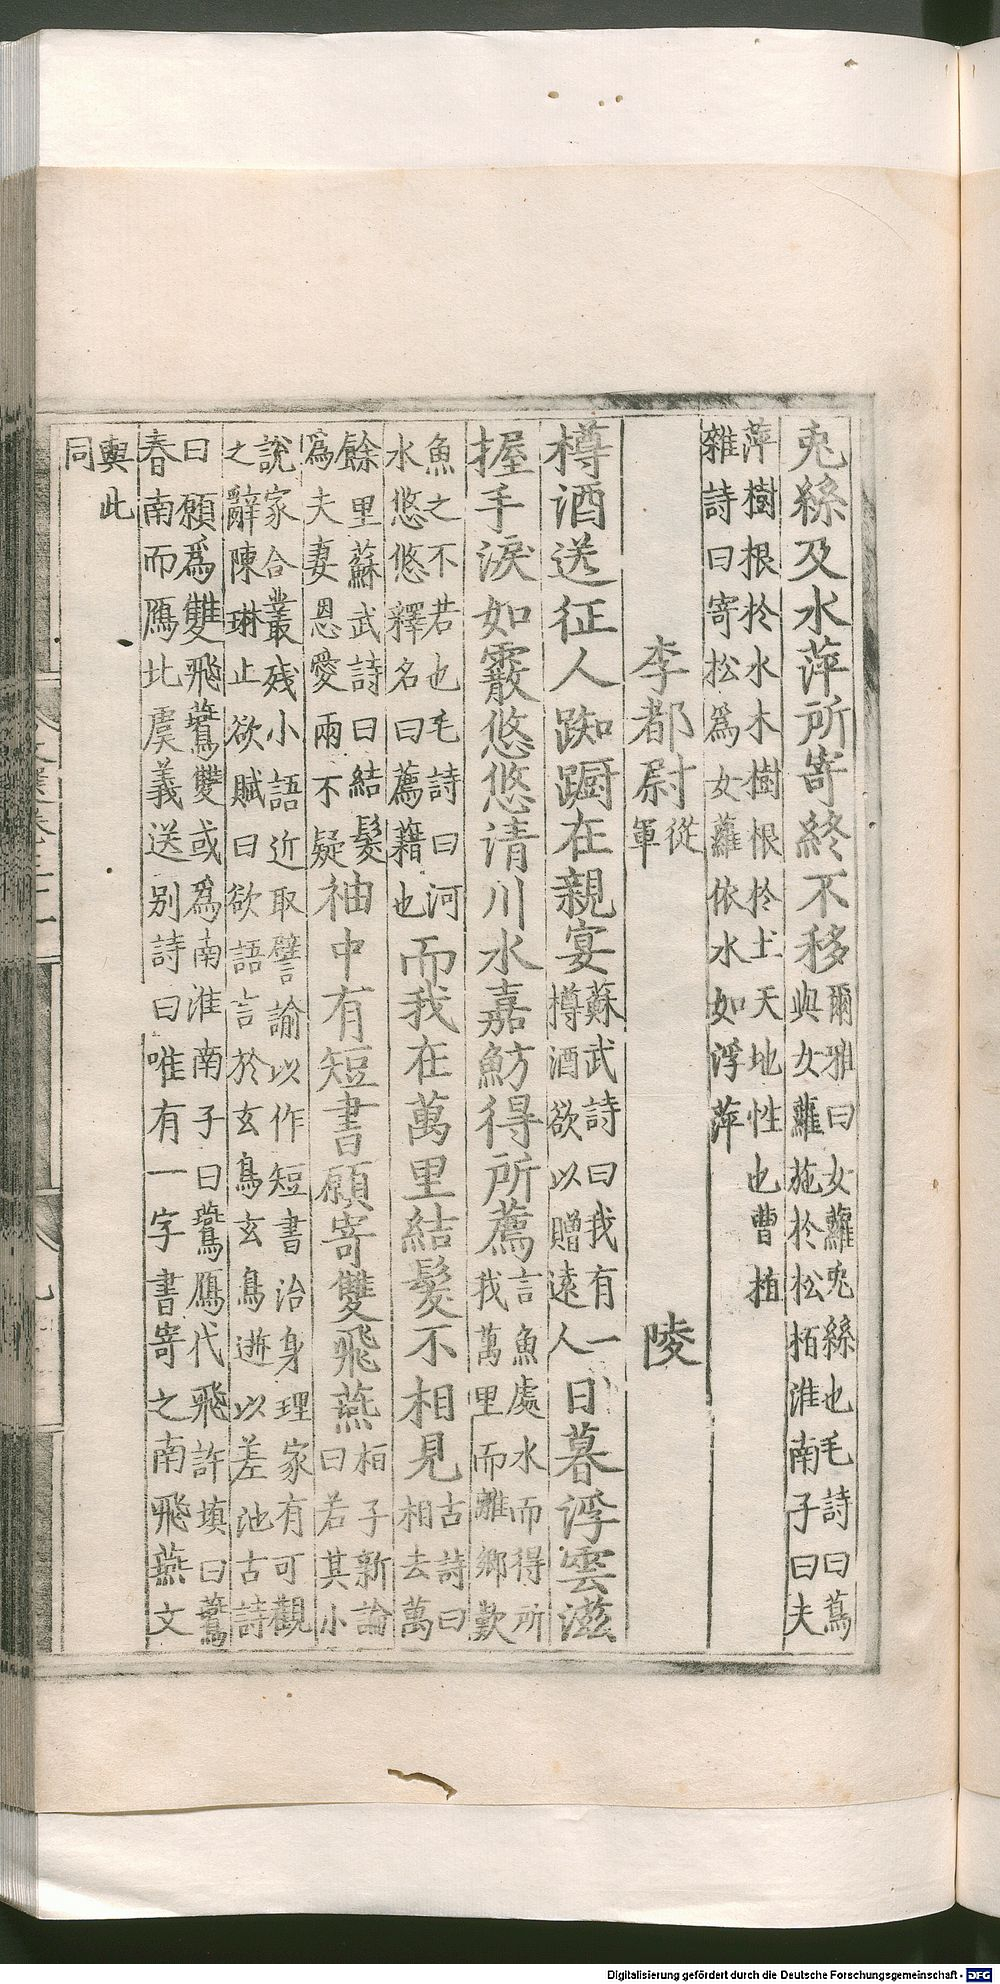 兎絲及水萍所寄終不移爾雅曰女蘿兎絲也毛詩曰蔦
與女蘿施於松栢淮南子曰夫
萍樹根於水木樹根於土天地性也曹植
雜詩曰寄松爲女蘿依水如浮萍
李都尉從軍 陵
樽酒送征人踟躕在親宴蘇武詩曰我有一
樽酒欲以贈遠人日暮浮雲滋
握手淚如霰悠悠清川水嘉魴得所薦言魚處水而得所
我萬里而離鄉歎
魚之不若也毛詩曰河
水悠悠釋名曰薦藉也而我在萬里結髮不相見古詩曰
相去萬
餘里蘇武詩曰結髮
爲夫妻恩愛兩不疑袖中有短書願寄雙飛燕桓子新論
曰若其小
說家合叢殘小語近取譬諭以作短書治身理家有可觀
之辭陳琳止欲賦曰欲語言於玄鳥玄鳥逝以差池古詩
曰願爲雙飛鷰雙或爲南淮南子曰鷰鴈代飛許填曰鷰
春南而鴈北虞義送别詩曰唯有一字書寄之南飛燕文
輿此
同
Digitalisierung gefördert durch die Deutsche Forschungsgemeinschaft - DFG